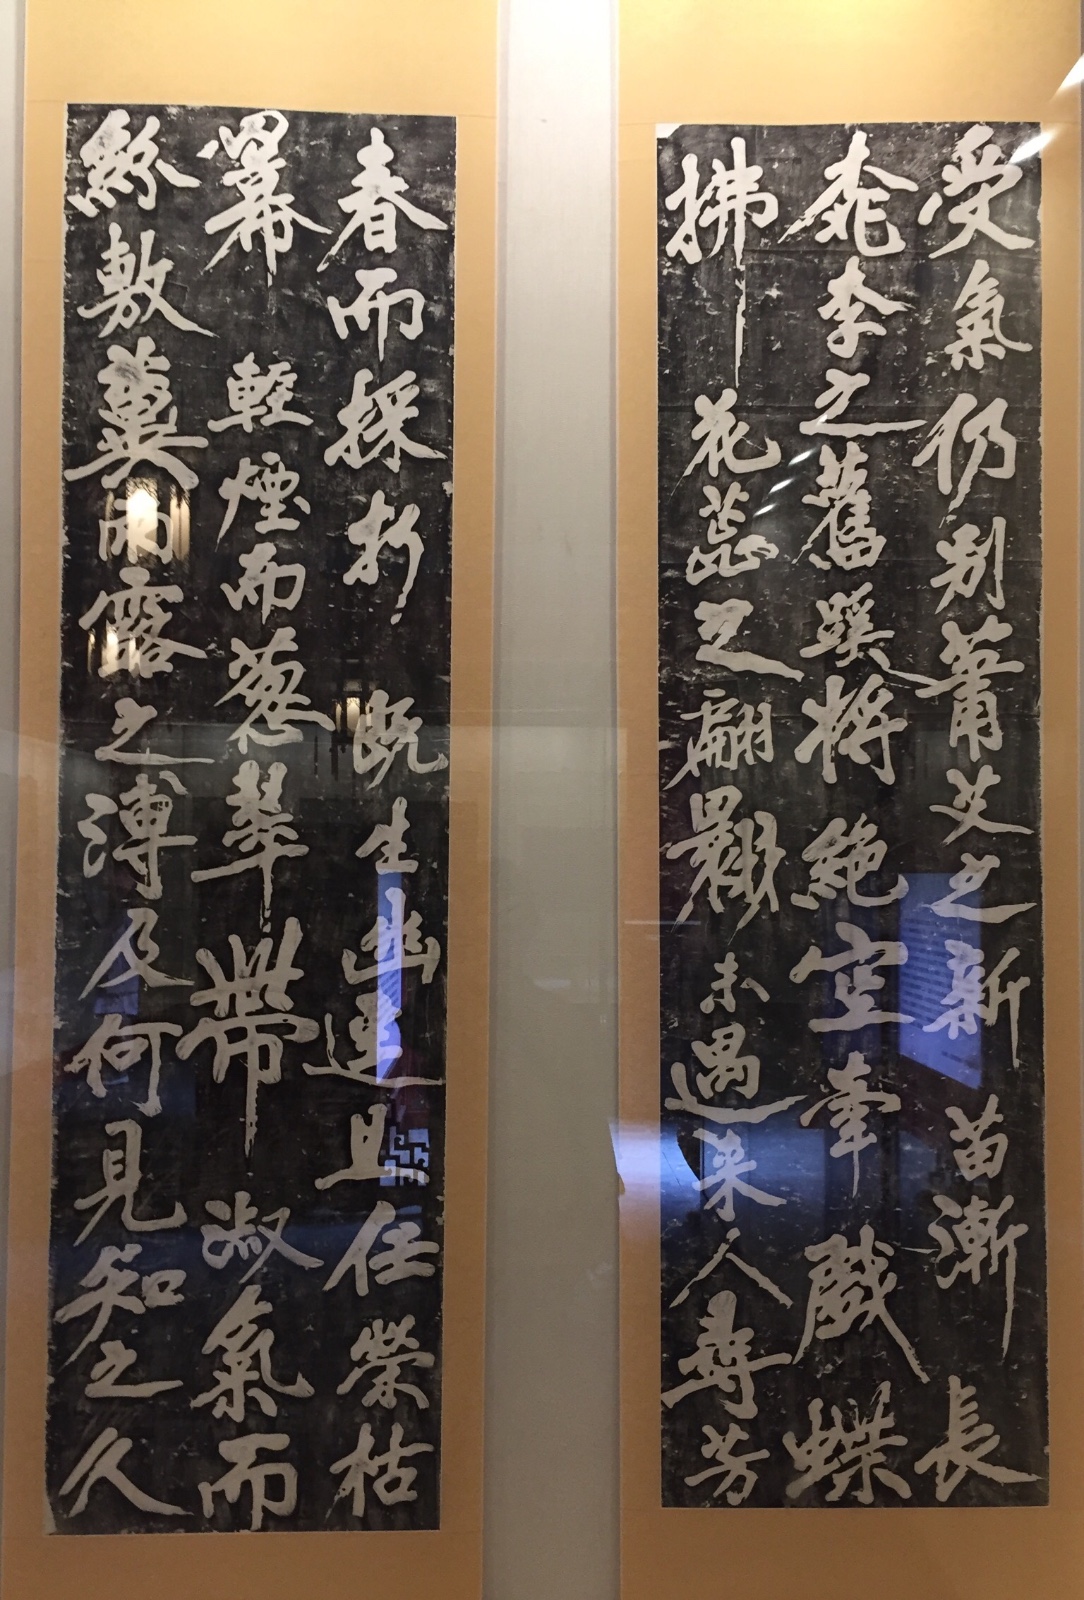 受氣仍別蕭艾之新苗漸長
桃李之舊蹊將絶空牽戲蝶
拂花蕊之翩翾未遇來人尋芳
春而採折既生幽遠且任榮枯
冪輕煙而葱翠帶淑氣而
紛敷冀雨露之溥及何見知之久